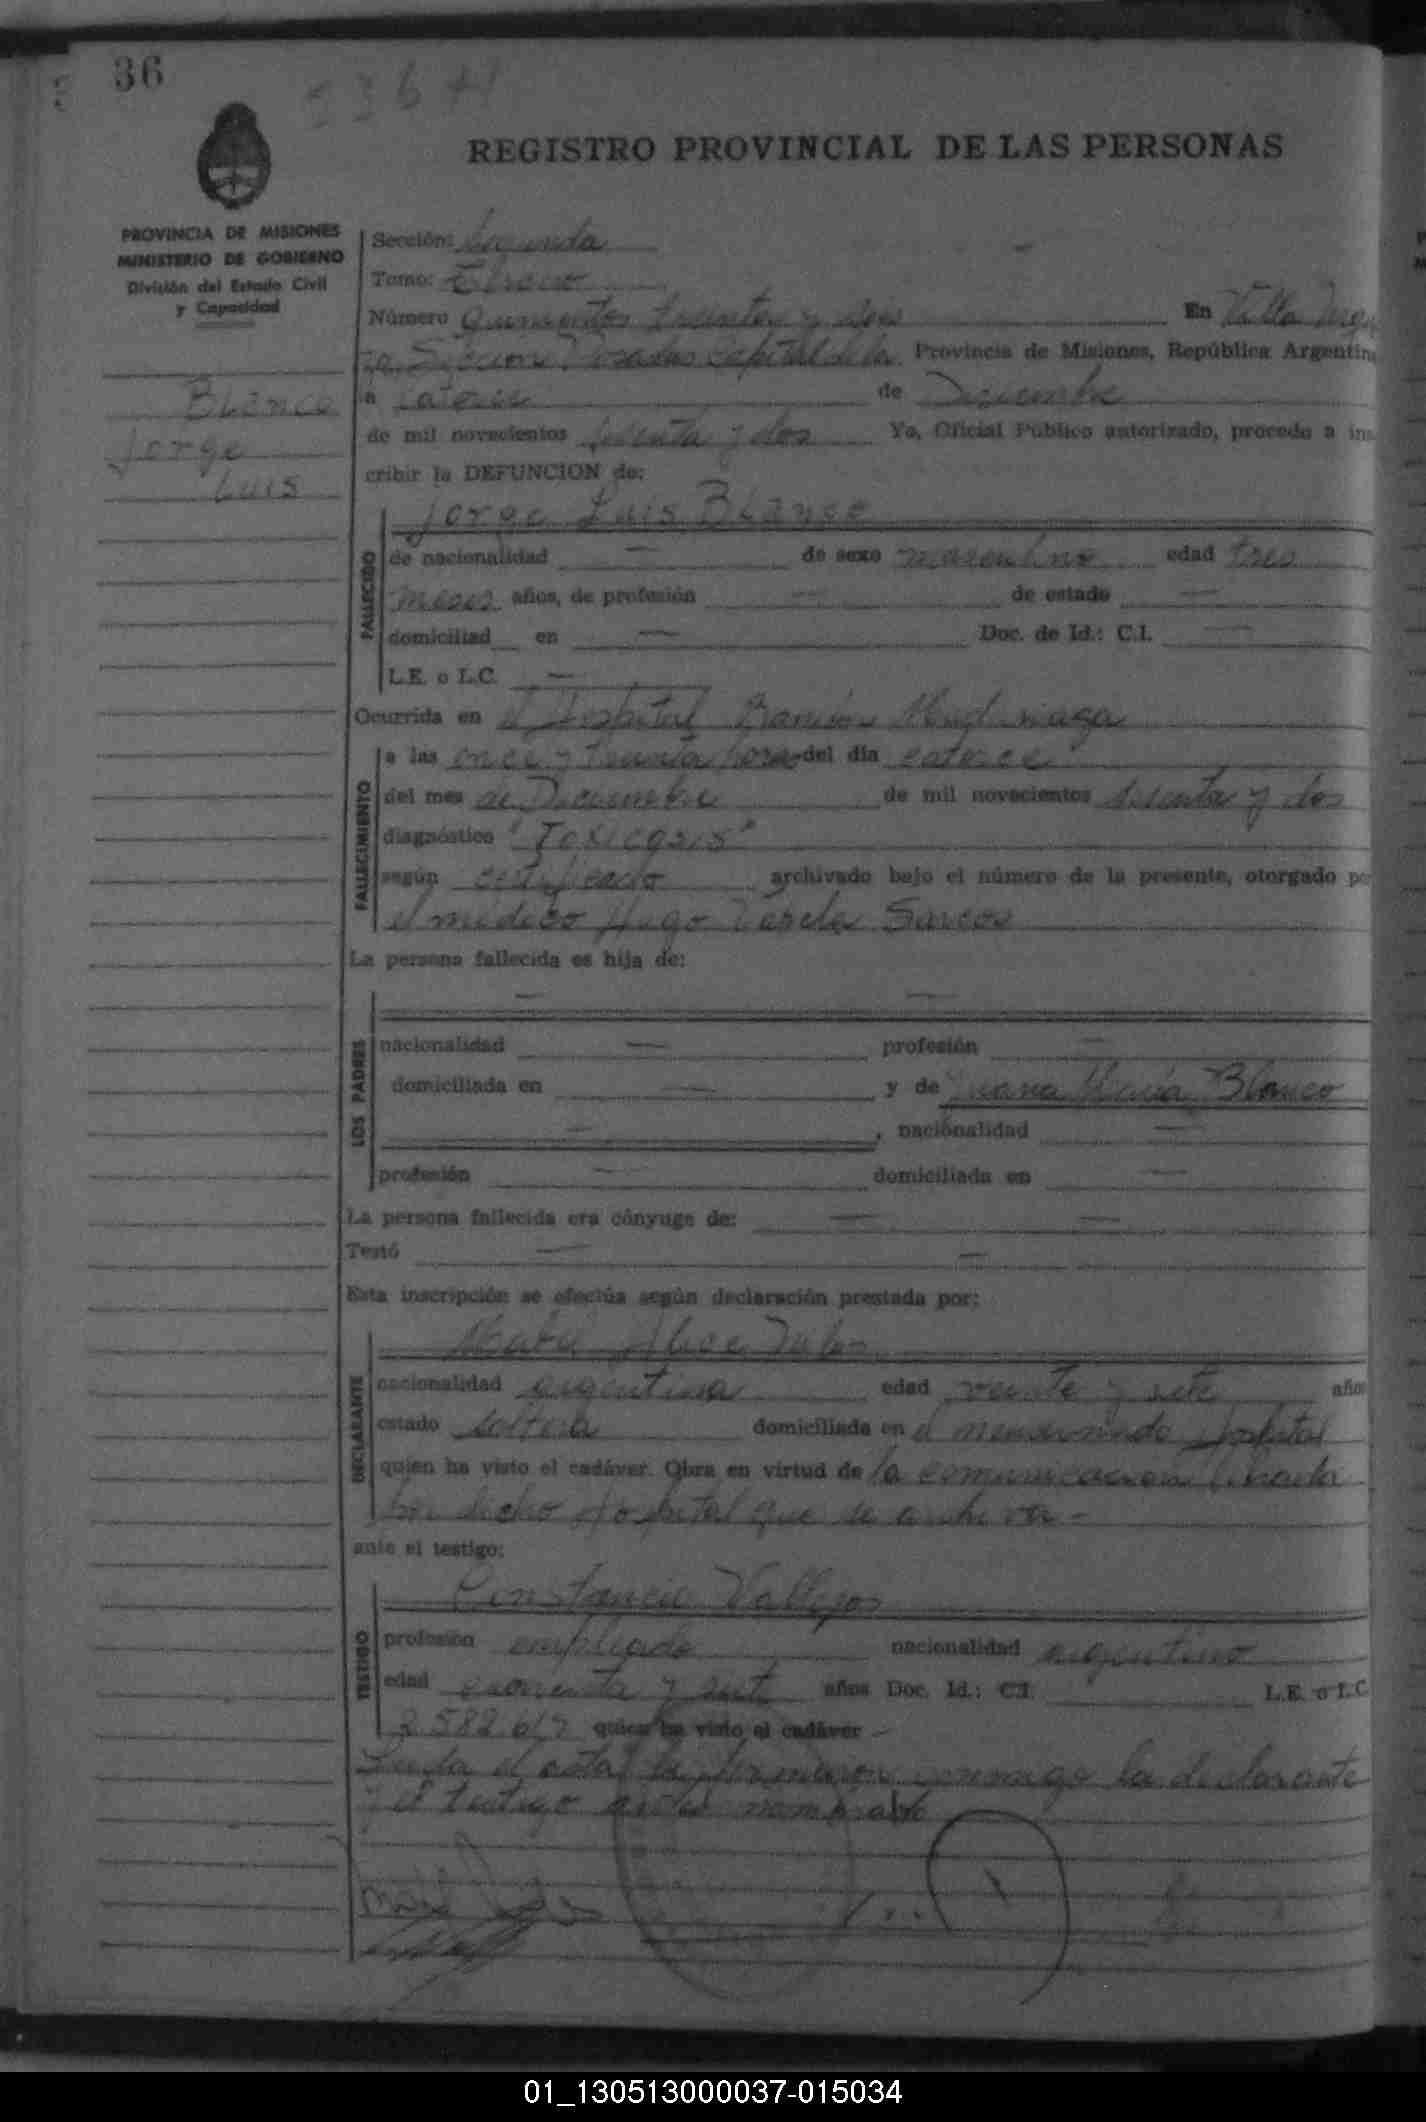 36
536 H
REGISTRO PROVINCIAL DE LAS PERSONAS
PROVINCIA DE MISIONES
MINISTERIO DE GOBIERNO
División del Estado Civil
y Capacidad
Blanco
Jorge
Luis
Sección: Segunda
Tomo:
Número quinientos treinta y seis En Villa
Posadas Capital de la Provincia de Misiones, República Argentina
a catorce de Diciembre
de mil novecientos sesenta y dos Yo, Oficial Público autorizado, procedo a ins
cribir la DEFUNCION de:
Jorge Luis Blanco
FALLECIDO
de nacionalidad — de sexo masculino edad tres
meses años, de profesión — de estado —
domiciliad en — Doc. de Id.: C.I. —
L.E. o L.C. —
Ocurrida en el Hospital Ramón Madariaga
FALLECIMIENTO
a las once y treinta horas del día catorce
del mes de Diciembre de mil novecientos sesenta y dos
diagnóstico "Toxicosis"
según certificado archivado bajo el número de la presente, otorgado por
el médico Hugo Varela
La persona fallecida es hija de:
— —
LOS PADRES
nacionalidad — profesión —
domiciliada en — y de Juana María Blanco
— , nacionalidad —
profesión — domiciliada en —
La persona fallecida era cónyuge de: — —
Testó — —
Esta inscripción se efectúa según declaración prestada por:
DECLARANTE
nacionalidad argentina edad veinte y siete años
estado soltera domiciliada en el mencionado Hospital
quien ha visto el cadáver. Obra en virtud de la comunicación librada
por dicho Hospital que se archiva -
ante el testigo:
Constancio Vallejos
TESTIGO
profesión empleado nacionalidad argentino
edad cuarenta y siete años Doc. Id.: C.I. L.E. o L.C.
2.582.617 quien ha visto el cadáver -
Leída el acta la firmaron conmigo la declarante
y el testigo antes nombrado
01_130513000037-015034